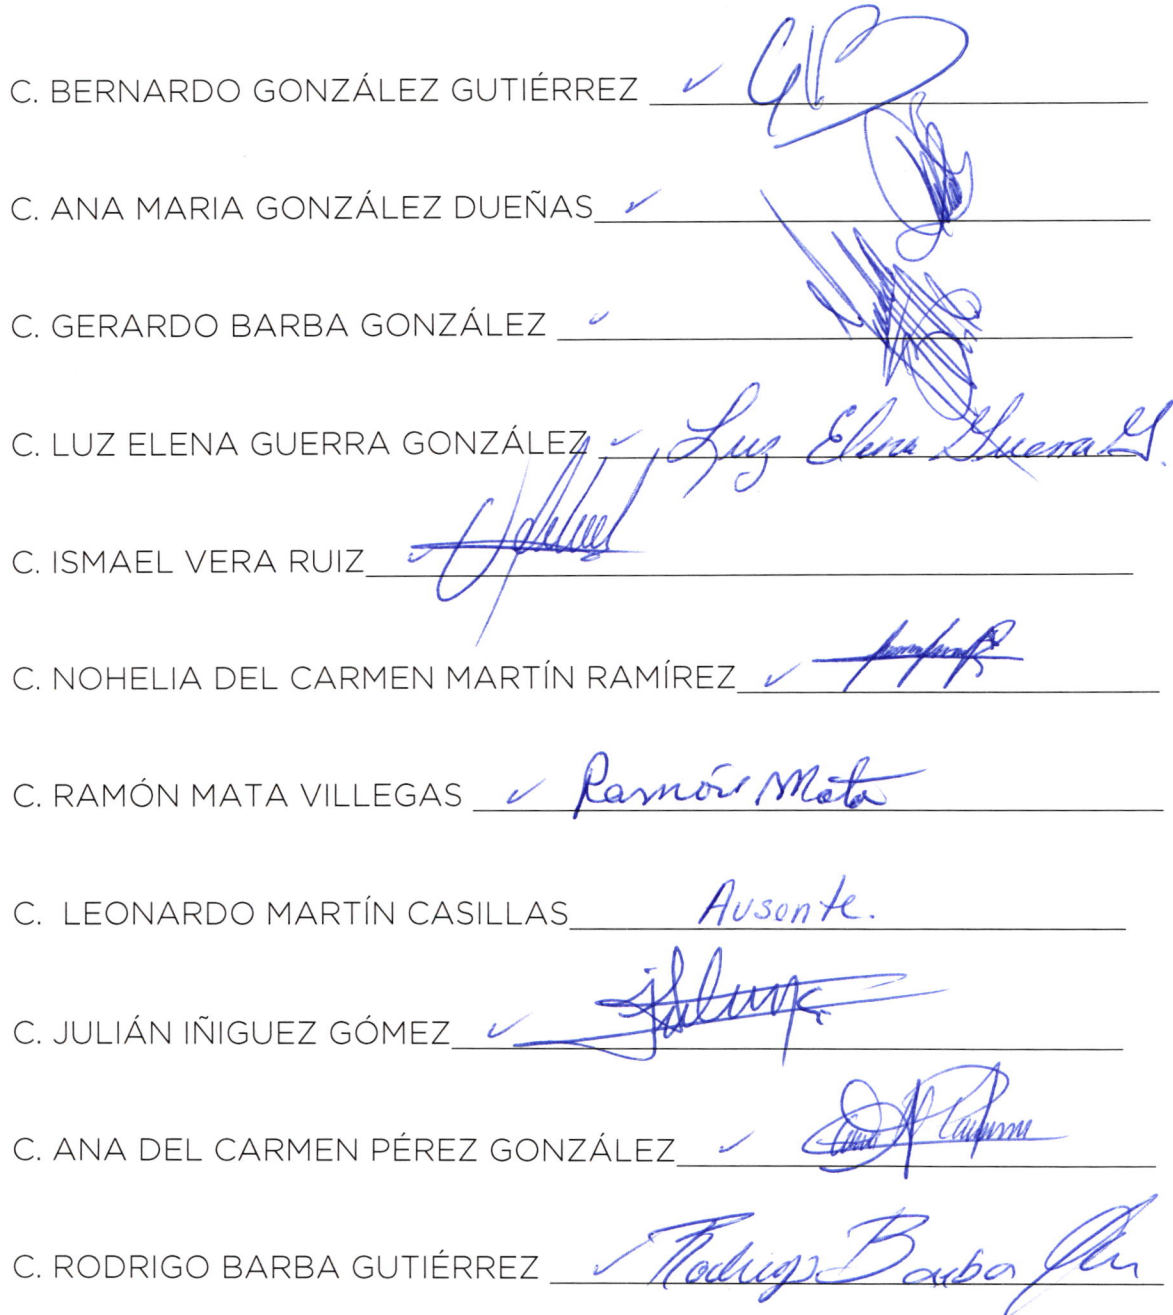 C. BERNARDO GONZÁLEZ GUTIÉRREZ
C. ANA MARIA GONZÁLEZ DUEÑAS
C. GERARDO BARBA GONZÁLEZ
C. LUZ ELENA GUERRA GONZÁLEZ Luz Elena Guerra G.
C. ISMAEL VERA RUIZ
C. NOHELIA DEL CARMEN MARTÍN RAMÍREZ
C. RAMÓN MATA VILLEGAS Ramón Mata
C. LEONARDO MARTÍN CASILLAS Ausente.
C. JULIÁN IÑIGUEZ GÓMEZ
C. ANA DEL CARMEN PÉREZ GONZÁLEZ
C. RODRIGO BARBA GUTIÉRREZ Rodrigo Barba